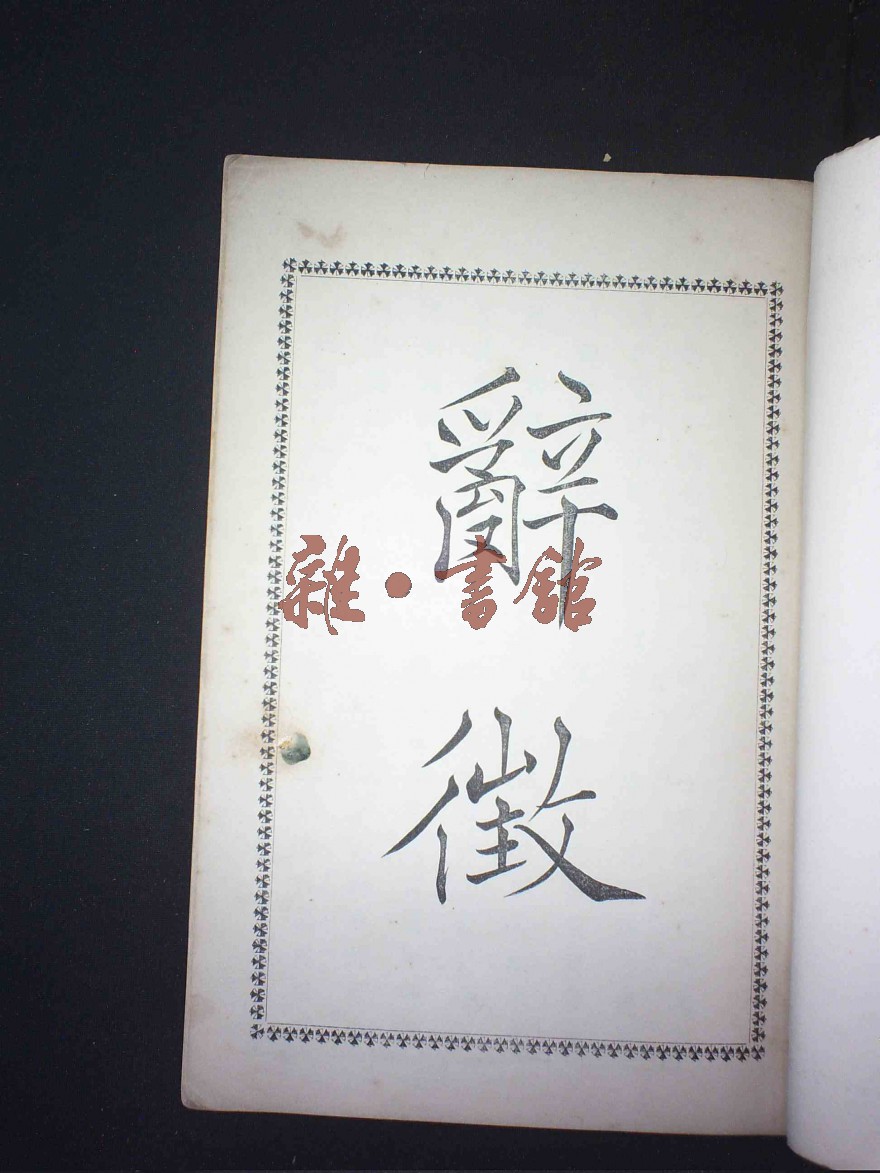 辭徵
雜·書館